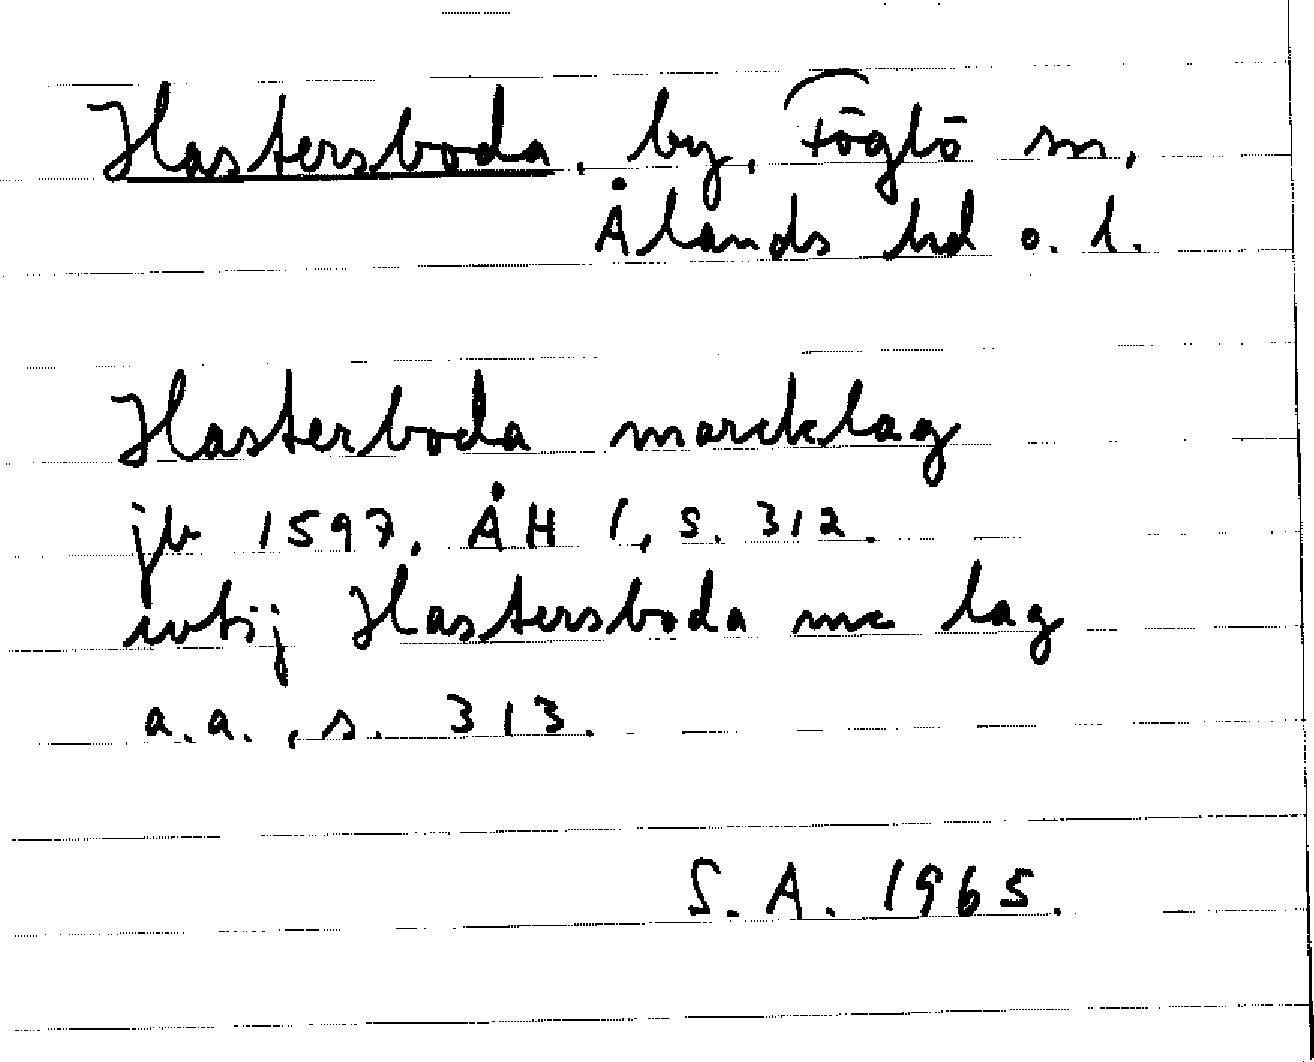 Hastersboda, by, Föglö sn,
Ålands hd o. l.
Hasterboda marcklag
jb 1597, ÅH I, s. 312.
Hastersboda mc lag
a.a., s. 313.
S. A. 1965.